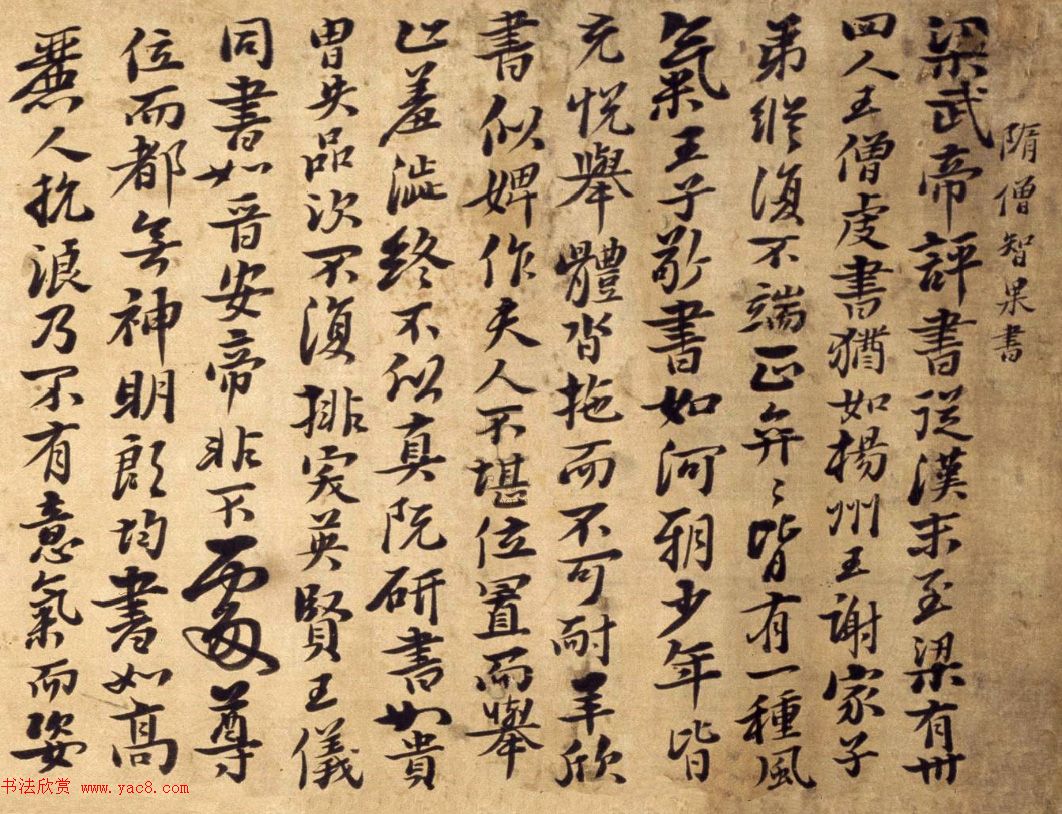 隋僧智果書
梁武帝評書從漢末至梁有卅
四人王僧虔書猶如楊州王謝家子
弟縱復不端正弈々皆有一種風
氣王子敬書如河朔少年皆
充悅舉體沓拖而不可耐羊欣
書似婢作夫人不堪位置而舉
止羞澁終不似真阮研書如貴
胄失品次不復排突英賢王儀
同書如晉安帝非不處尊
位而都無神明殷均書如高
麗人抗浪乃不有意氣而姿
书法欣赏 www.yac8.com